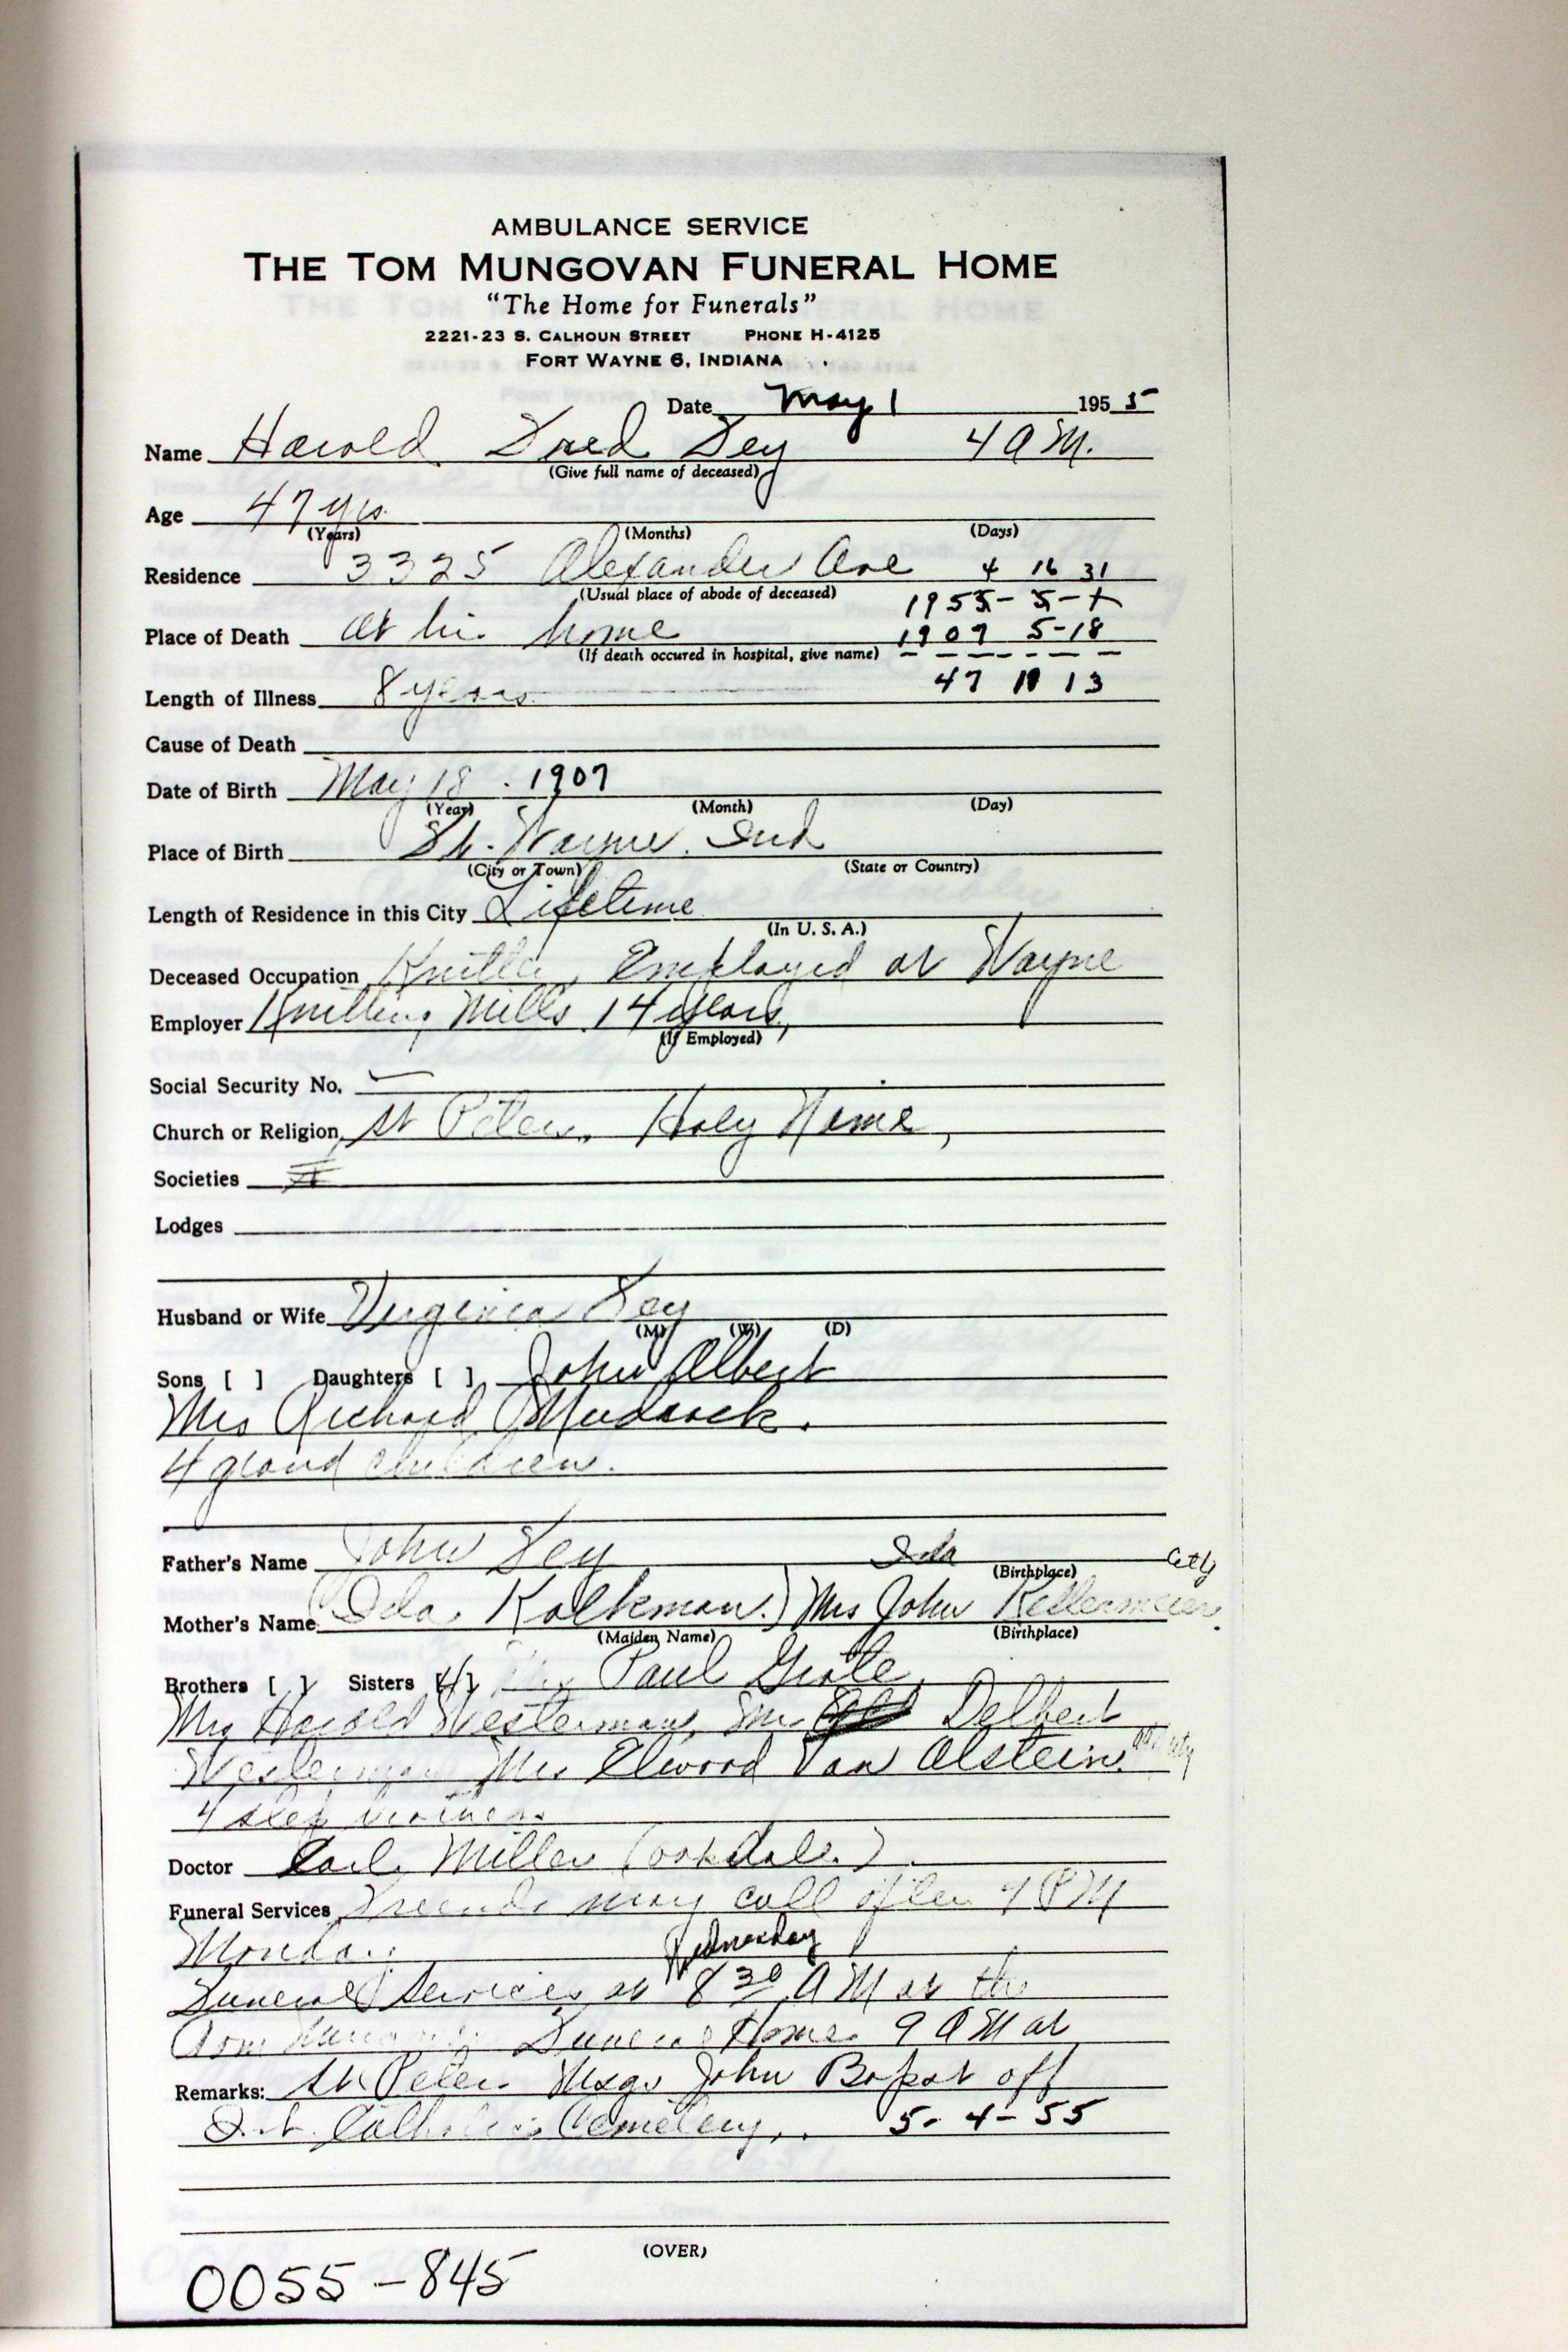 AMBULANCE SERVICE
THE TOM MUNGOVAN FUNERAL HOME
"The Home for Funerals"
2221-23 S. CALHOUN STREET PHONE H-4125
FORT WAYNE 6, INDIANA
Date May 1 1955
Name Harold Fred Fey 4 A M.
(Give full name of deceased)
Age 47 yrs.
(Years) (Months) (Days)
Residence 3325 Alexander Ave 4 16 31
(Usual place of abode of deceased) 1955-5-1
Place of Death at his home 1907 5-18
(If death occured in hospital, give name)
Length of Illness 8 years 47 11 13
Cause of Death
Date of Birth May 18. 1907
(Year) (Month) (Day)
Place of Birth Ft. Wayne. Ind
(City or Town) (State or Country)
Length of Residence in this City Lifetime
(In U. S. A.)
Deceased Occupation Knitter, Employed at Wayne
Employer Knitting Mills 14 years,
(If Employed)
Social Security No. —
Church or Religion St Peters. Holy Name,
Societies
Lodges
Husband or Wife Virginia Fey
(M) (W) (D)
Sons [ ] Daughters [ ] John Albert
Mrs Richard Murdock.
4 grand children.
Father's Name John Fey
(Birthplace) City
Mother's Name (Ida Kolkman.) Mrs John Kellermeier.
(Maiden Name) (Birthplace)
Brothers [ ] Sisters [4] Mrs Paul Grote,
Mrs Harold Westerman, Mrs Delbert
Westerman Mrs Elwood Van Alstein.
4 step brothers
Doctor Carl Miller (Oakdale.)
Funeral Services Friends may call after 7 P M
Monday
Wednesday
Funeral Services at 8 30 A M at the
Tom Mungovan Funeral Home. 9 A M at
Remarks: St Peters Msgr John Bapst off
Catholic Cemetery, 5-4-55
(OVER)
0055-845